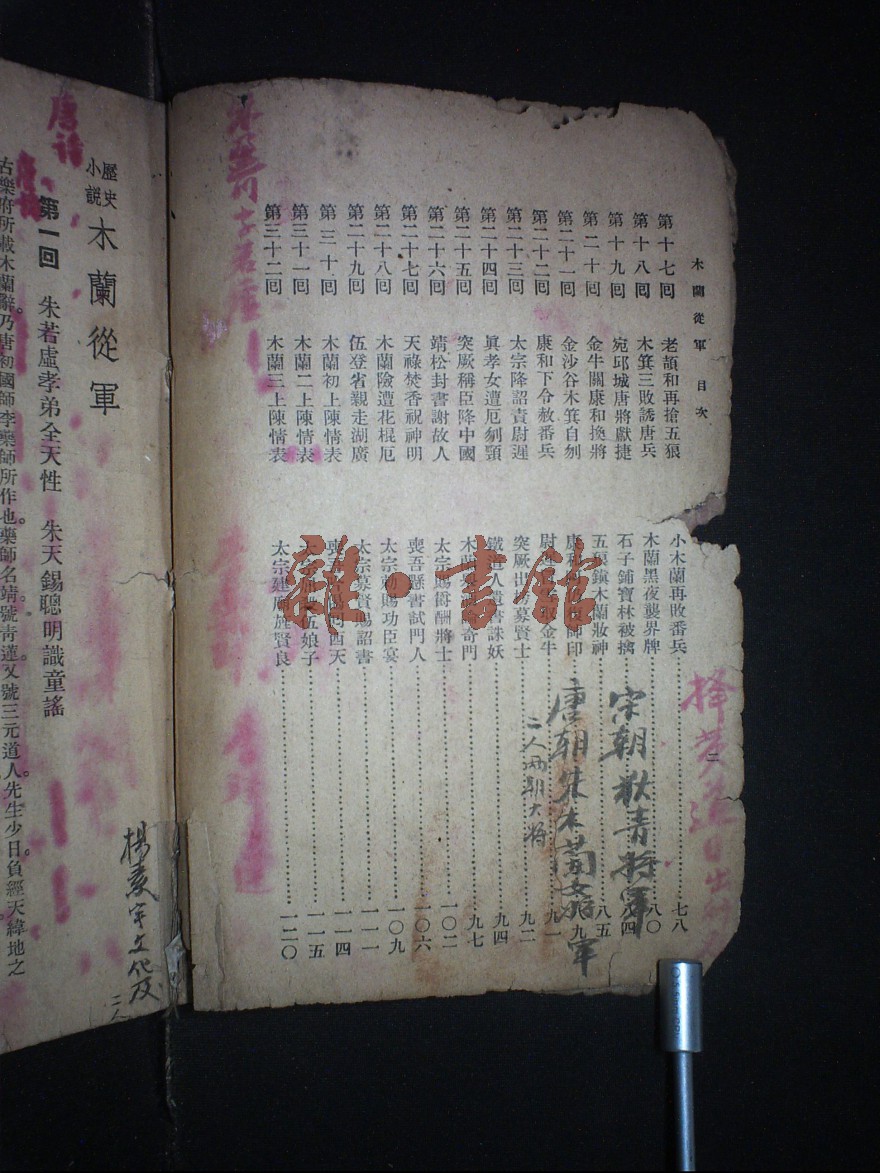 木蘭從軍 目次
二
第十七回 老頡和再搶五狼 小木蘭再敗番兵 七八
第十八回 木箕三敗誘唐兵 木蘭黑夜襲界牌 八〇
第十九回 宛邱城唐將獻捷 石子鋪寶林被擒 四
第二十回 金牛關康和換將 五狼鎮木蘭妝神 八五
第二十一回 金沙谷木箕自刎 康和 印 九
第二十二回 康和下令赦番兵 尉 金牛 九一
第二十三回 太宗降詔責尉遲 突厥出 募賢士 九二
第二十四回 眞孝女遭厄刎頸 鐵道人遺書誅妖 九四
第二十五回 突厥稱臣降中國 木蘭 奇門 九七
第二十六回 靖松封書謝故人 太宗 爵酬將士 一〇二
第二十七回 天祿焚香祝神明 喪吾懸書試門人 一〇六
第二十八回 木蘭險遭花棍厄 太宗勅賜功臣宴 一〇九
第二十九回 伍登省親走湖廣 太宗慕賢賜詔書 一一一
第三十回 木蘭初上陳情表 喪吾 西天 一一四
第三十一回 木蘭二上陳情表 太宗 伍娘子 一一五
第三十二回 木蘭三上陳情表 太宗建廟旌賢良 一二〇
宋朝狄青將軍
唐朝朱木蘭 軍
二人兩朝大將
雜·書館
歷史小説 木蘭從軍
第一回 朱若虛孝弟全天性 朱天錫聰明識童謠
古樂府所載木蘭辭。乃唐初國師李藥師所作也。藥師名靖。號青蓮。又號三元道人。先生少日。負經天緯地之
楊 宇文化及
二人